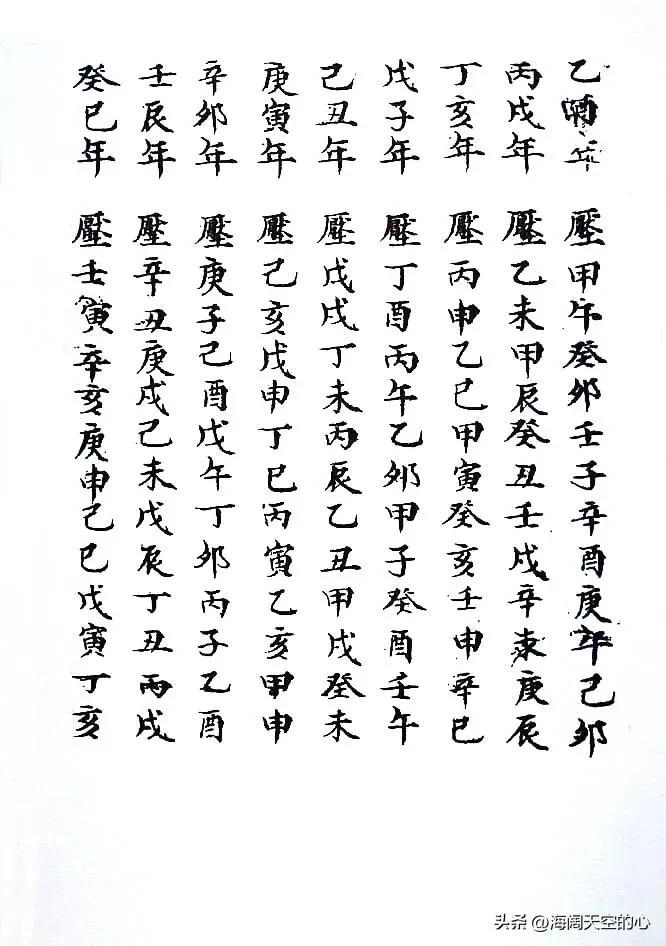 乙酉年 壓甲午癸卯壬子辛酉庚年己卯
丙戌年 壓乙未甲辰癸丑壬戌辛未庚辰
丁亥年 壓丙申乙巳甲寅癸亥壬申辛巳
戊子年 壓丁酉丙午乙卯甲子癸酉壬午
己丑年 壓戊戌丁未丙辰乙丑甲戌癸未
庚寅年 壓己亥戊申丁巳丙寅乙亥甲申
辛卯年 壓庚子己酉戊午丁卯丙子乙酉
壬辰年 壓辛丑庚戌己未戊辰丁丑丙戌
癸巳年 壓壬寅辛亥庚申己巳戊寅丁亥
头条 @海阔天空的心